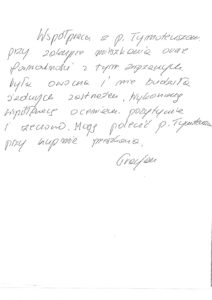 Współpraca z p. Tymoteuszem
przy zakupie mieszkania oraz
formalności z tym związanych
była owocna i nie budziła
żadnych zastrzeżeń. Wykonaną
współpracę oceniam pozytywnie
i rzeczowo. Mogę polecić p. Tymoteusza
przy kupnie mieszkania.